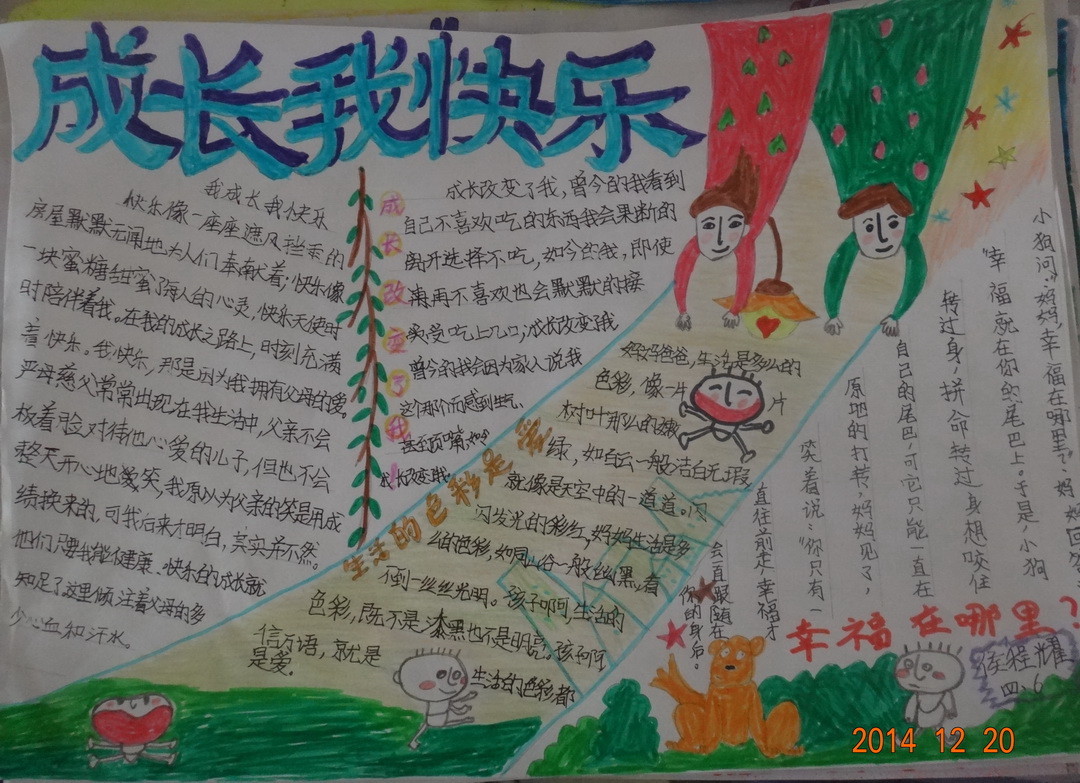 成长我快乐
我成长我快乐
快乐像一座座遮风挡雨的
房屋默默无闻地为人们奉献着;快乐像
一块蜜糖甜蜜了人的心灵,快乐天使时
时陪伴着我。在我的成长之路上,时刻充满
着快乐。我快乐,那是因为我拥有父母的爱。
严母慈父常常出现在我生活中,父亲不会
板着脸对待他心爱的儿子,但也不会
整天开心地嘻笑,我原以为父亲的笑是用成
绩换来的,可我后来才明白,其实并不然。
他们只要我能健康、快乐的成长就
知足了这里倾注着父母的多
少心血和汗水。
成长改变了我
成长改变了我,曾今的我看到
自己不喜欢吃的东西我会果断的
离开选择不吃,如今的我,即使
再不喜欢也会默默的接
受吃上几口;成长改变了我
曾今的我会因为家人说我
这个那个而感到生气,
甚至顶嘴,如今
成长改变我
生活的色彩是爱
爸爸,生活是多么的
色彩,像一片片
树叶那么的嫩
绿,如白云一般洁白无瑕
就像是天空中的一道道。闪
闪发光的彩虹,妈妈生活是多
么的色彩,如同山谷一般丝黑,看
不到一丝丝光明。孩子啊,生活的
色彩,既不是漆黑也不是明亮。孩子啊
生活的色彩都
信万语,就是
是爱。
幸福在哪里?
小狗问:“妈妈,幸福在哪里?”妈妈回答
“幸福就在你的尾巴上。于是,小狗
转过身,拼命转过身想咬住
自己的尾巴,可它只能一直在
原地的打转,妈妈见了,
笑着说:“你只有一
直往前走幸福才
会一直跟随在
你的身后。
侯程耀
四、6
2014 12 20